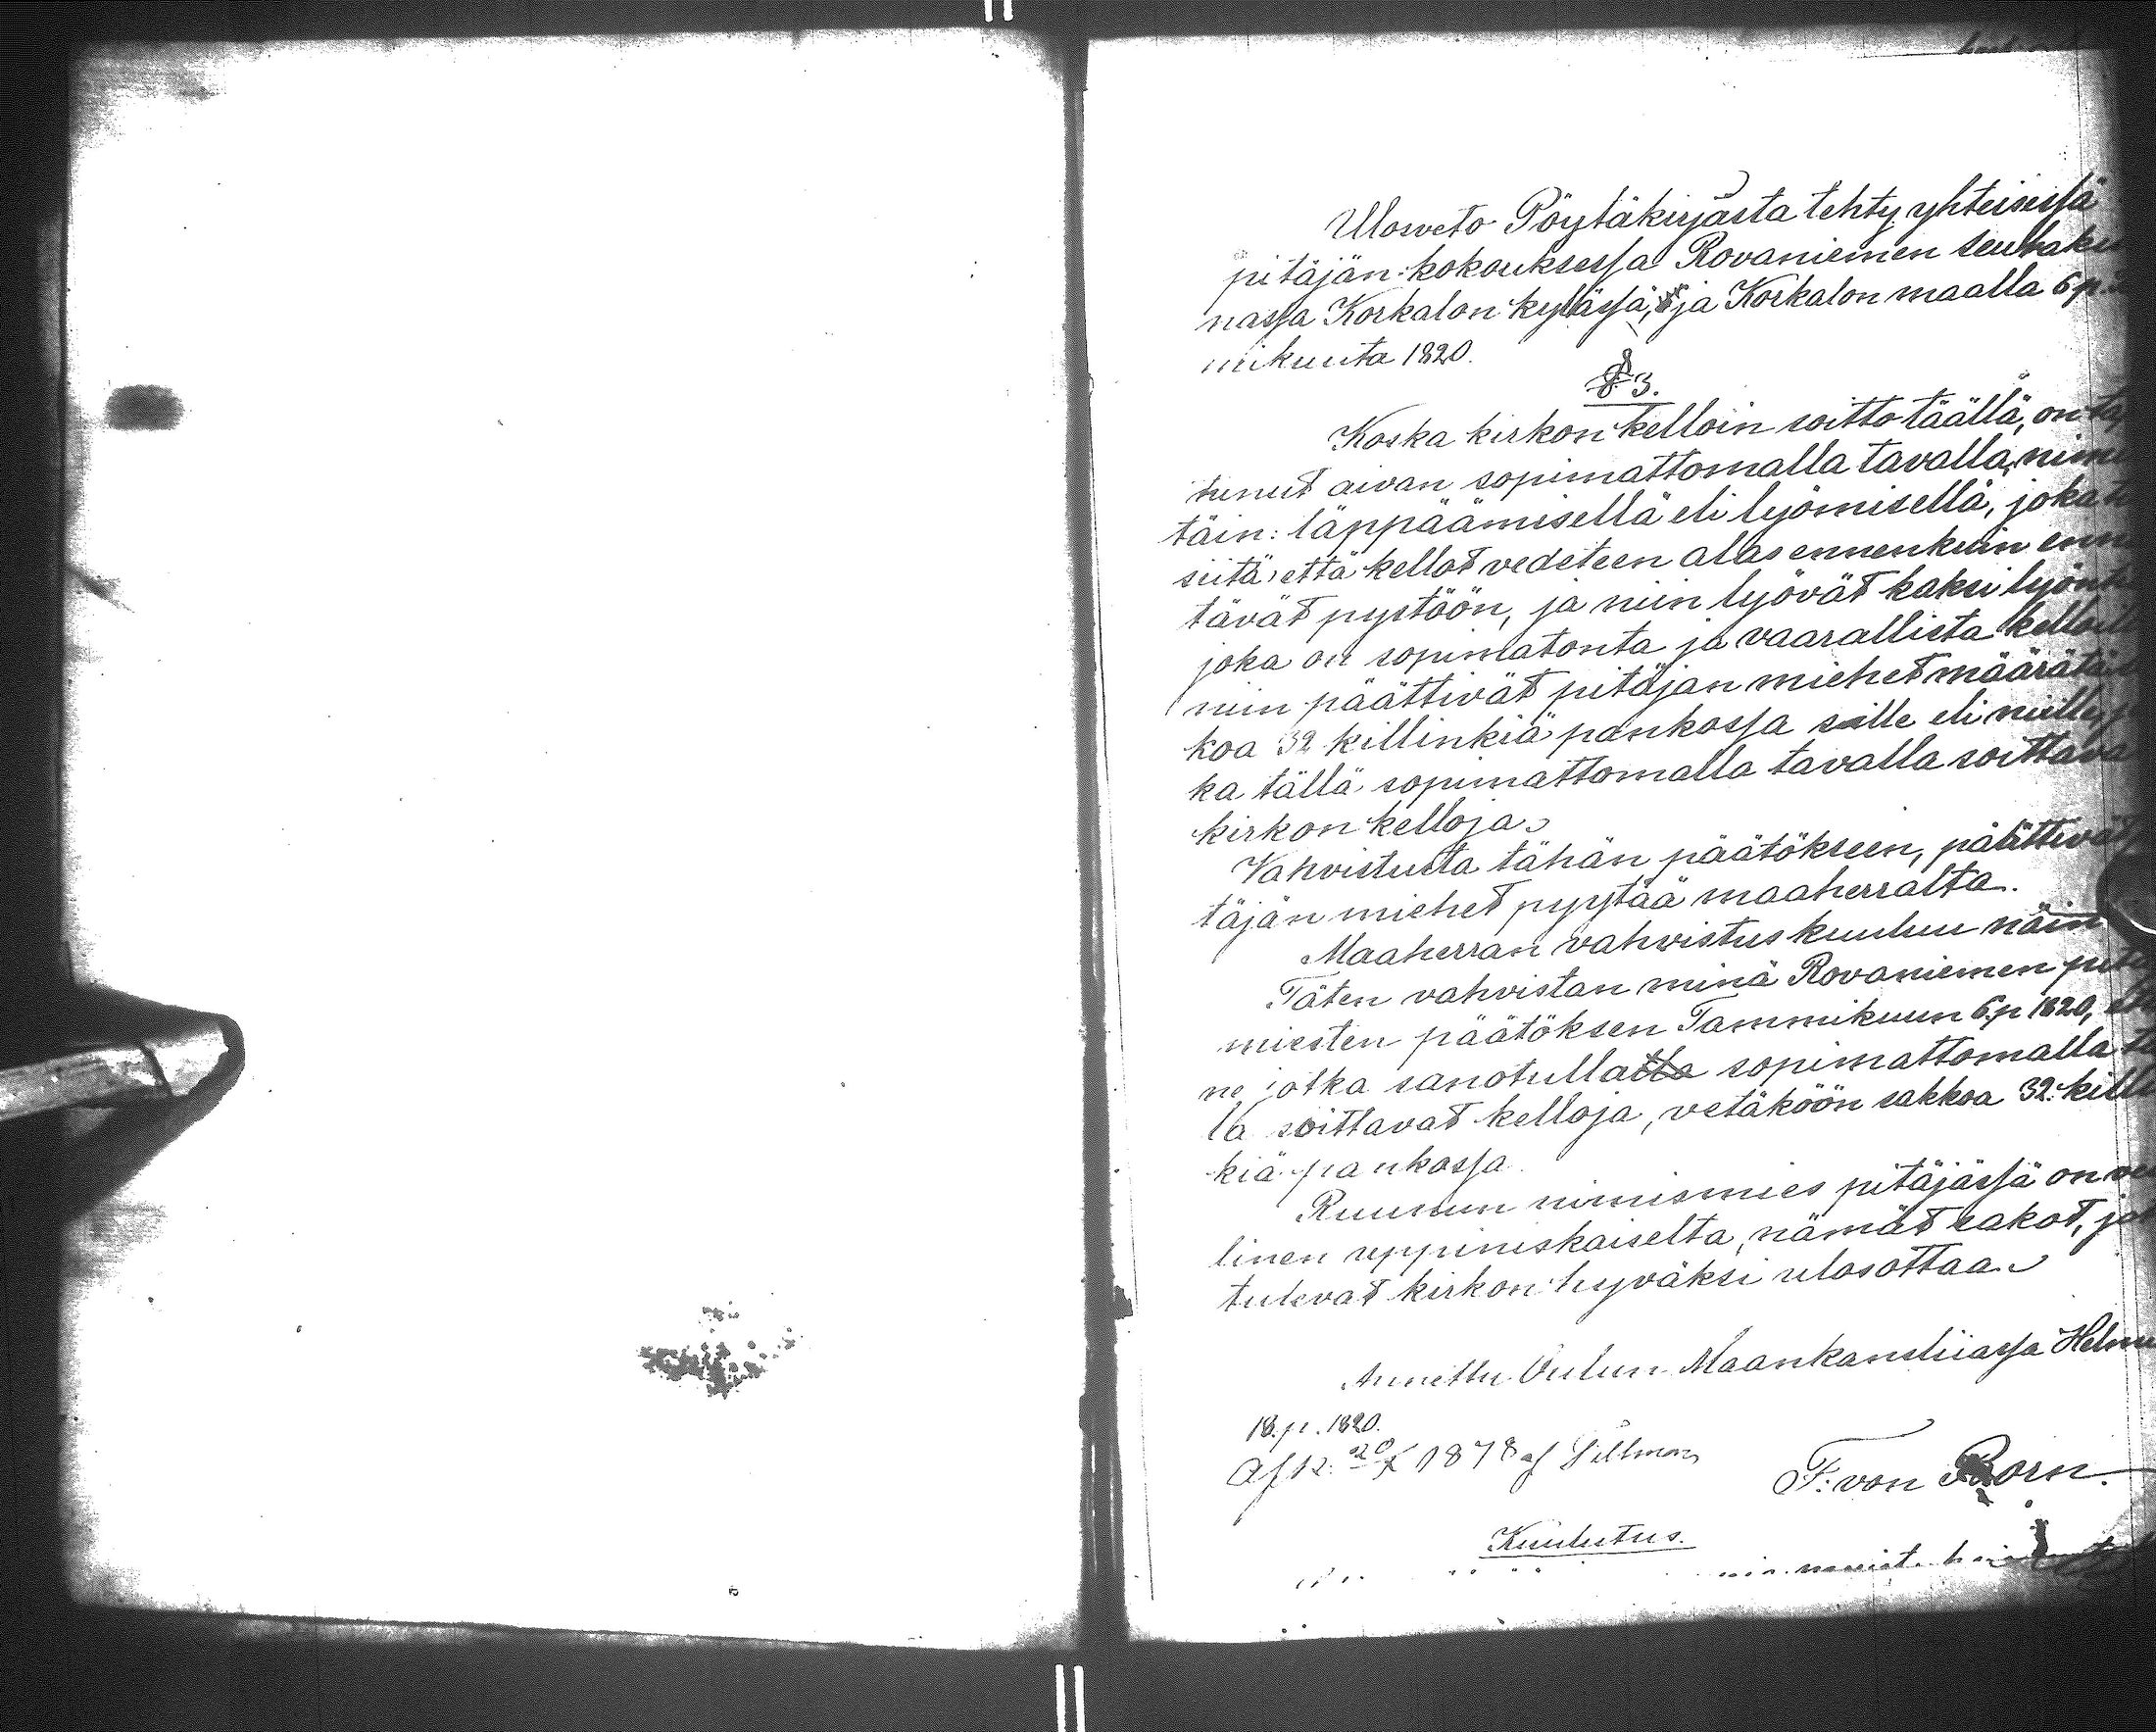 Uloweto Pöytäkirjasta tehty yhteisessä
pitäjän kokouksessa Rovaniemen seuraku
nassa Korkalon kylässä, ja Korkalon maalla 6 p.
mikuuta 1820.
§ 3.
Koska kirkon kelloin soitto täällä, on ta
tunut aivan sopimattomalla tavalla, nimi
täin: läppäämisellä eli lyömisellä, joka
siitä, että kellot vedeteen alas ennenkuin enn
tävät pystöön, ja niin lyövät kaksi lyön
joka on sopimatonta ja vaarallista kello
niin päättivät pitäjän miehet määrätä
koa 32 killinkiä pankossa sille eli niille,
ka tällä sopimattomalla tavalla soittava
kirkon kelloja.
Vahvistusta tähän päätökseen, päättivät
täjän miehet pyytää maaherralta.
Maaherran vahvistus kuuluu näin
Täten vahvistan minä Rovaniemen pitä
miesten päätöksen Tammikuun 6 p 1820, että
ne jotka sanotulla sopimattomalla ta
la soittavat kelloja, vetäköön sakkoa 32. killi
kiä pankossa.
Ruunun nimismies pitäjässä on vel
linen uppiniskaiselta, nämät sakot, jo
tulevat kirkon hyväksi ulosottaa.
Annettu Oulun Maankansliiassa Helmi
18. p. 1820.
F: von Born.
Kuulutus.